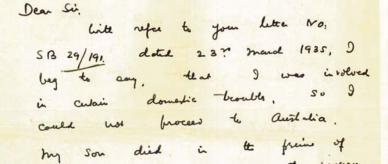 Dear Sir,
With refce to your letter No:
SB 29/191. dated 23rd March 1935, I
beg to say, that I was involved
in certain domestic troubles, so I
could not proceed to Australia.
My son died in the prime of